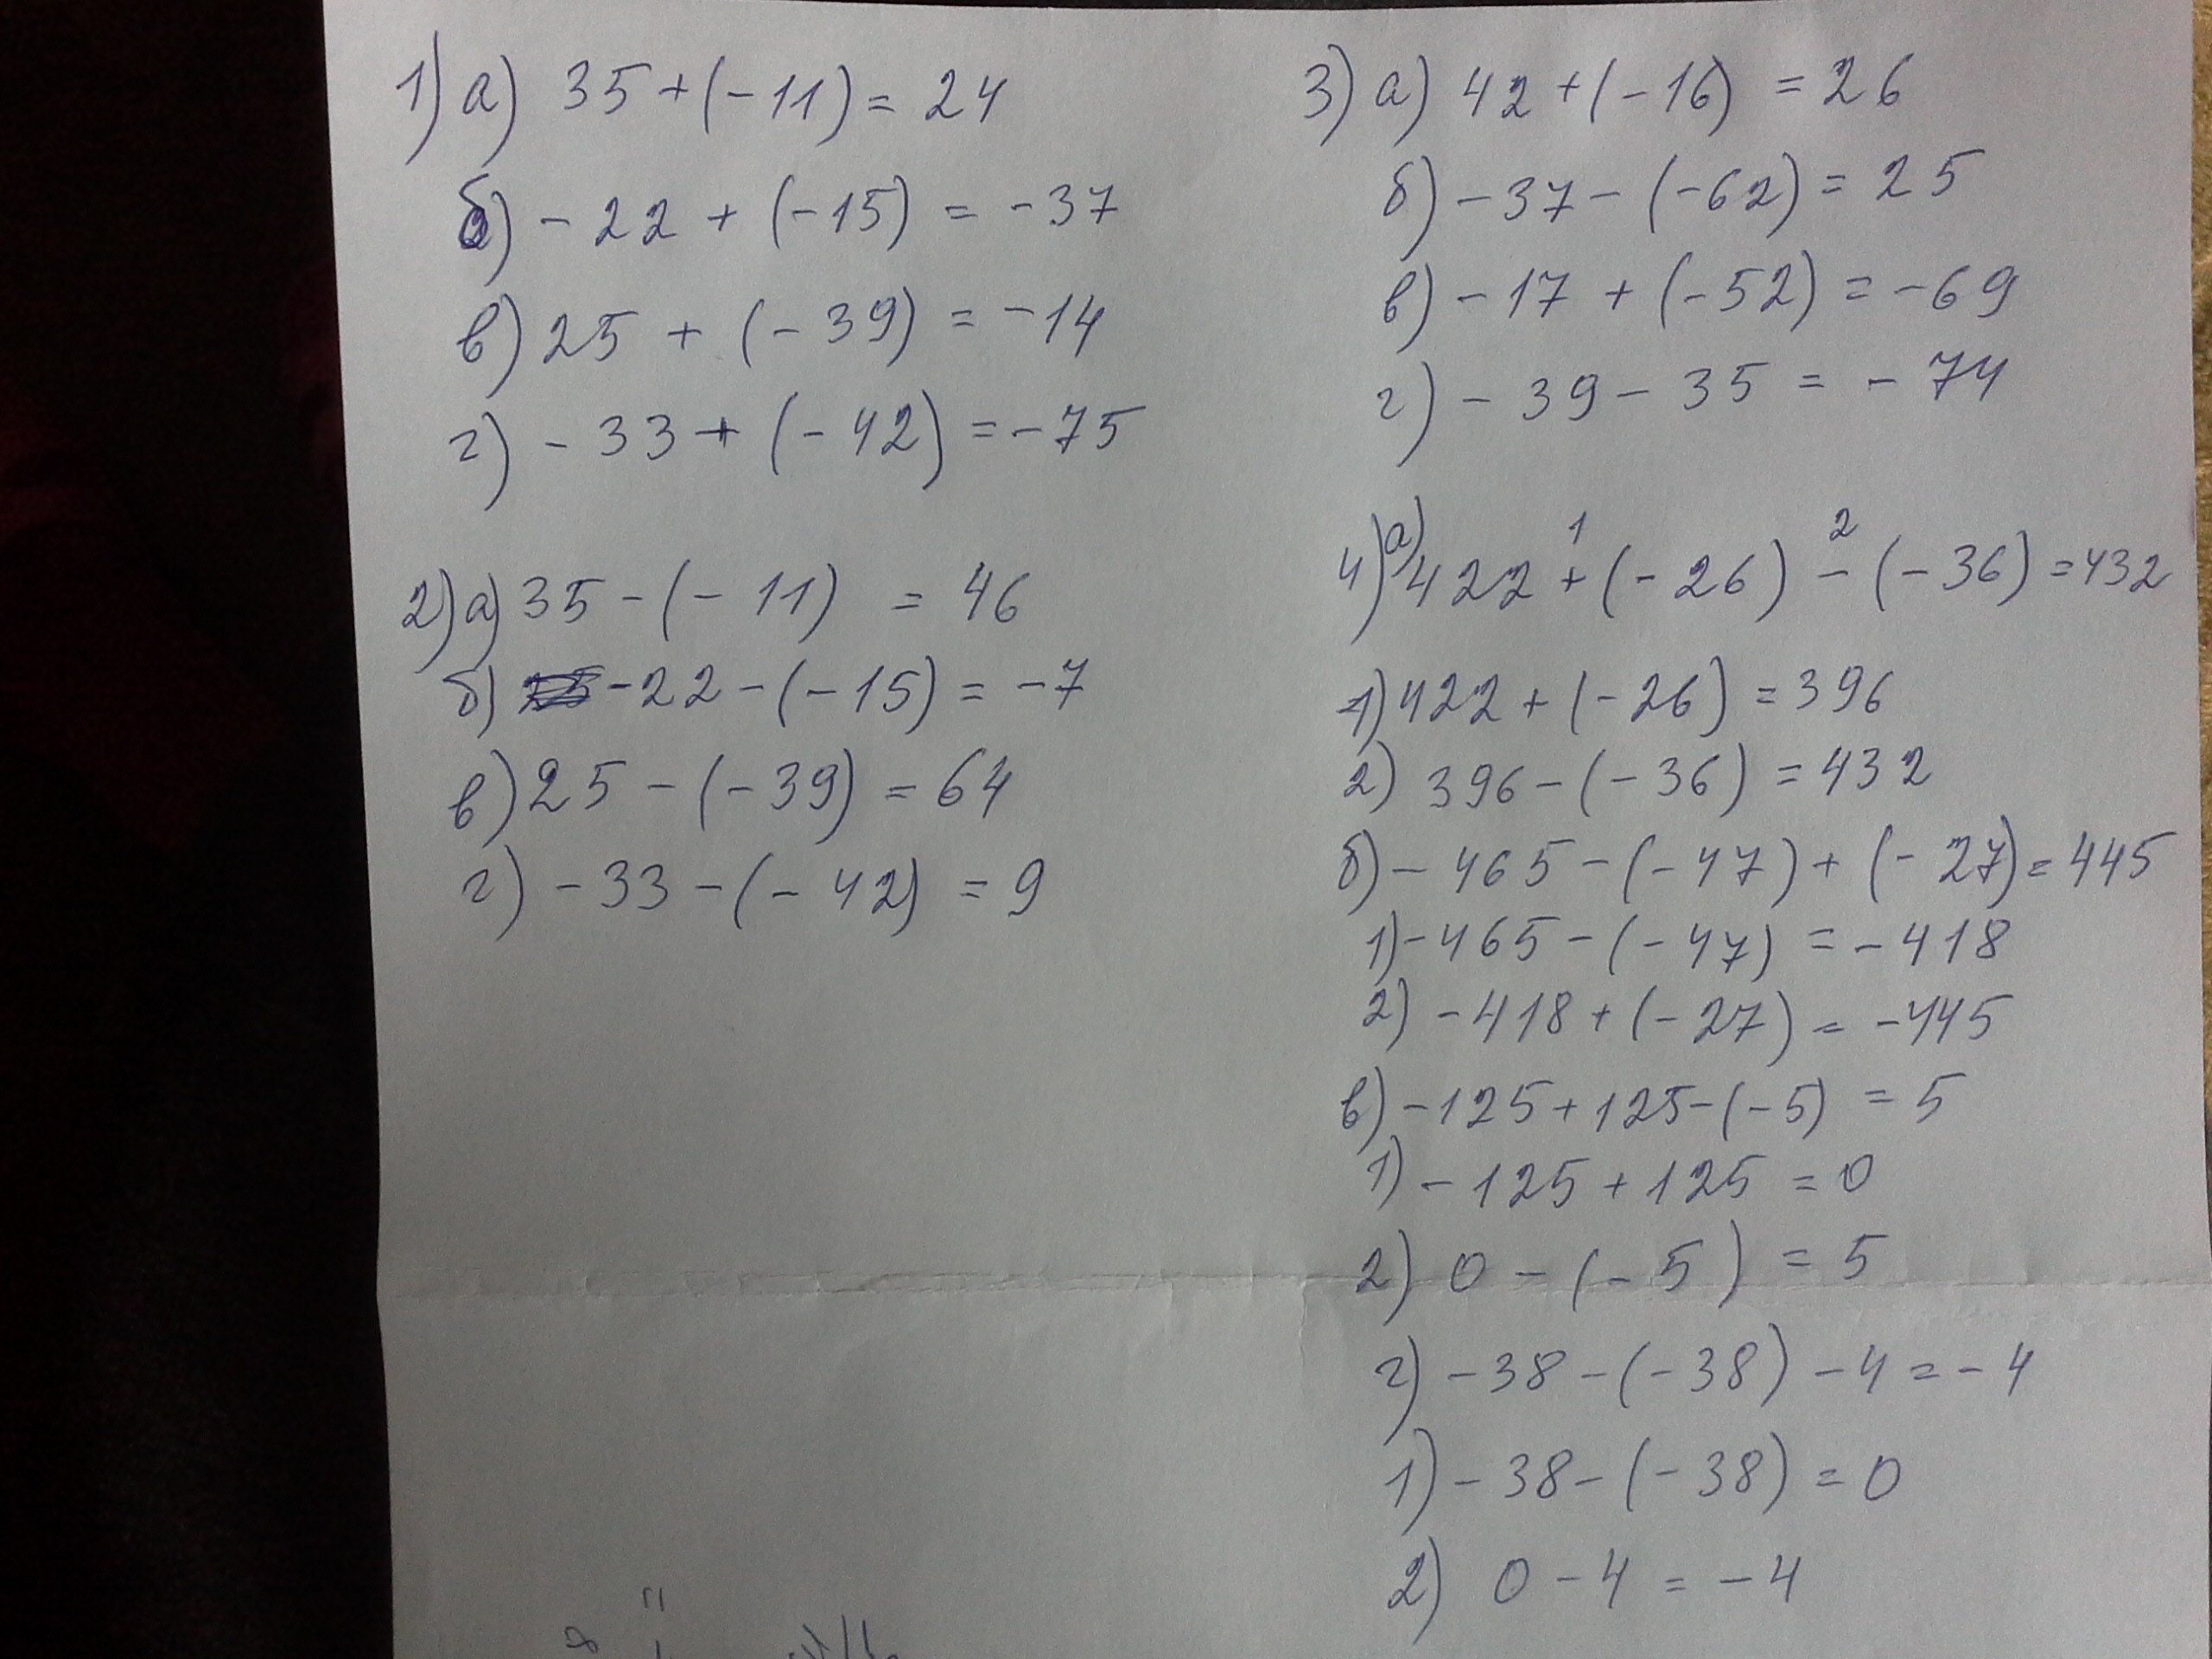 1) а) 35 + (-11) = 24
б) - 22 + (-15) = -37
в) 25 + (-39) = -14
г) - 33 + (-42) = -75
2) а) 35 - (-11) = 46
б) -22 - (-15) = -7
в) 25 - (-39) = 64
г) - 33 - (-42) = 9
3) а) 42 + (-16) = 26
б) - 37 - (-62) = 25
в) - 17 + (-52) = -69
г) - 39 - 35 = - 74
1 2
4) а) 422 + (-26) - (-36) = 432
1) 422 + (-26) = 396
2) 396 - (-36) = 432
б) - 465 - (-47) + (-27) = 445
1) -465 - (-47) = -418
2) -418 + (-27) = -445
в) -125 + 125 - (-5) = 5
1) - 125 + 125 = 0
2) 0 - (-5) = 5
г) - 38 - (-38) - 4 = - 4
1) - 38 - (-38) = 0
2) 0 - 4 = - 4